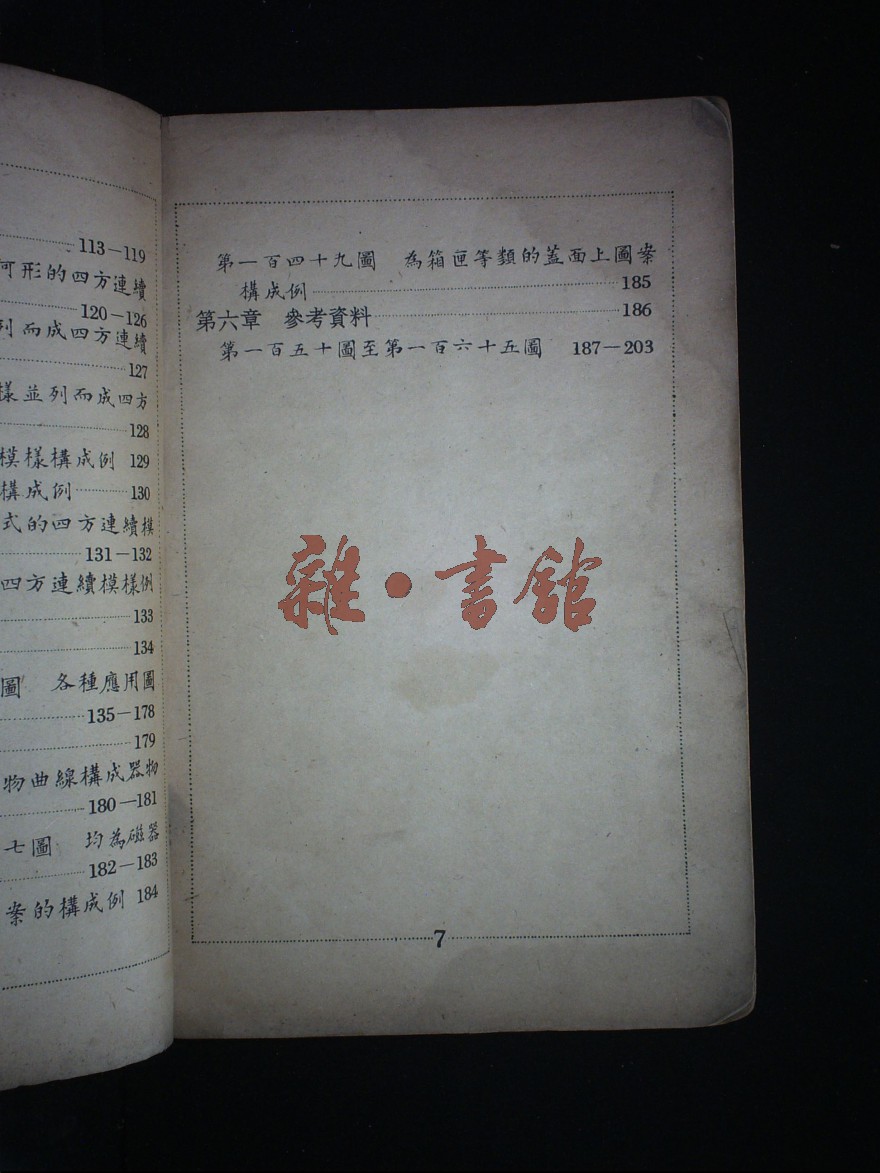 113—119
何形的四方連續
120—126
列而成四方連續
127
樣並列而成四方
128
模樣構成例 129
構成例 130
式的四方連續模
131—132
四方連續模樣例
133
134
圖 各種應用圖
135—178
179
物曲線構成器物
180—181
七圖 均為磁器
182—183
案的構成例 184
第一百四十九圖 為箱匣等類的蓋面上圖案
構成例 185
第六章 參考資料 186
第一百五十圖至第一百六十五圖 187—203
雜·書館
7